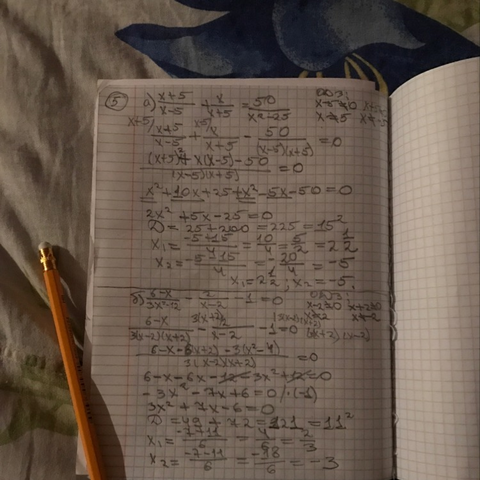 5 а) (x+5)/(x-5) + x/(x+5) = 50/(x²-25) ОДЗ:
x-5≠0 x+5≠0
x≠5 x≠-5
x+5) (x+5)/(x-5) + x-5) x/(x+5) - 50/((x-5)(x+5)) = 0
((x+5)²+x(x-5)-50)/((x-5)(x+5)) = 0
x²+10x+25+x²-5x-50=0
2x²+5x-25=0
D=25+200=225=15²
x₁=(-5+15)/4=10/4=5/2=2 1/2
x₂=(-5-15)/4=-20/4=-5
x₁=2 1/2; x₂=-5.
б) (6-x)/(3x²-12) - 2/(x-2) - 1=0 ОДЗ:
x-2≠0 x+2≠0
x≠2 x≠-2
(6-x)/(3(x-2)(x+2)) - 3(x+2) 2/(x-2) - 1=0
(6-x-6(x+2)-3(x²-4))/(3(x-2)(x+2)) = 0
6-x-6x-12-3x²+12=0
-3x²-7x+6=0 /·(-1)
3x²+7x-6=0
D=49+72=121=11²
x₁=(-7+11)/6=4/6=2/3
x₂=(-7-11)/6=-18/6=-3